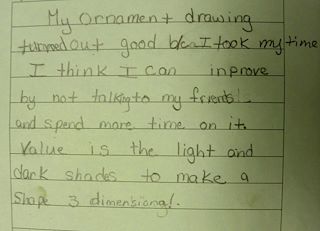 My Ornament drawing
turned out good b/c I took my time
I think I can inprove
by not talking to my friends!
and spend more time on it.
Value is the light and
dark shades to make a
Shape 3 dimensional.